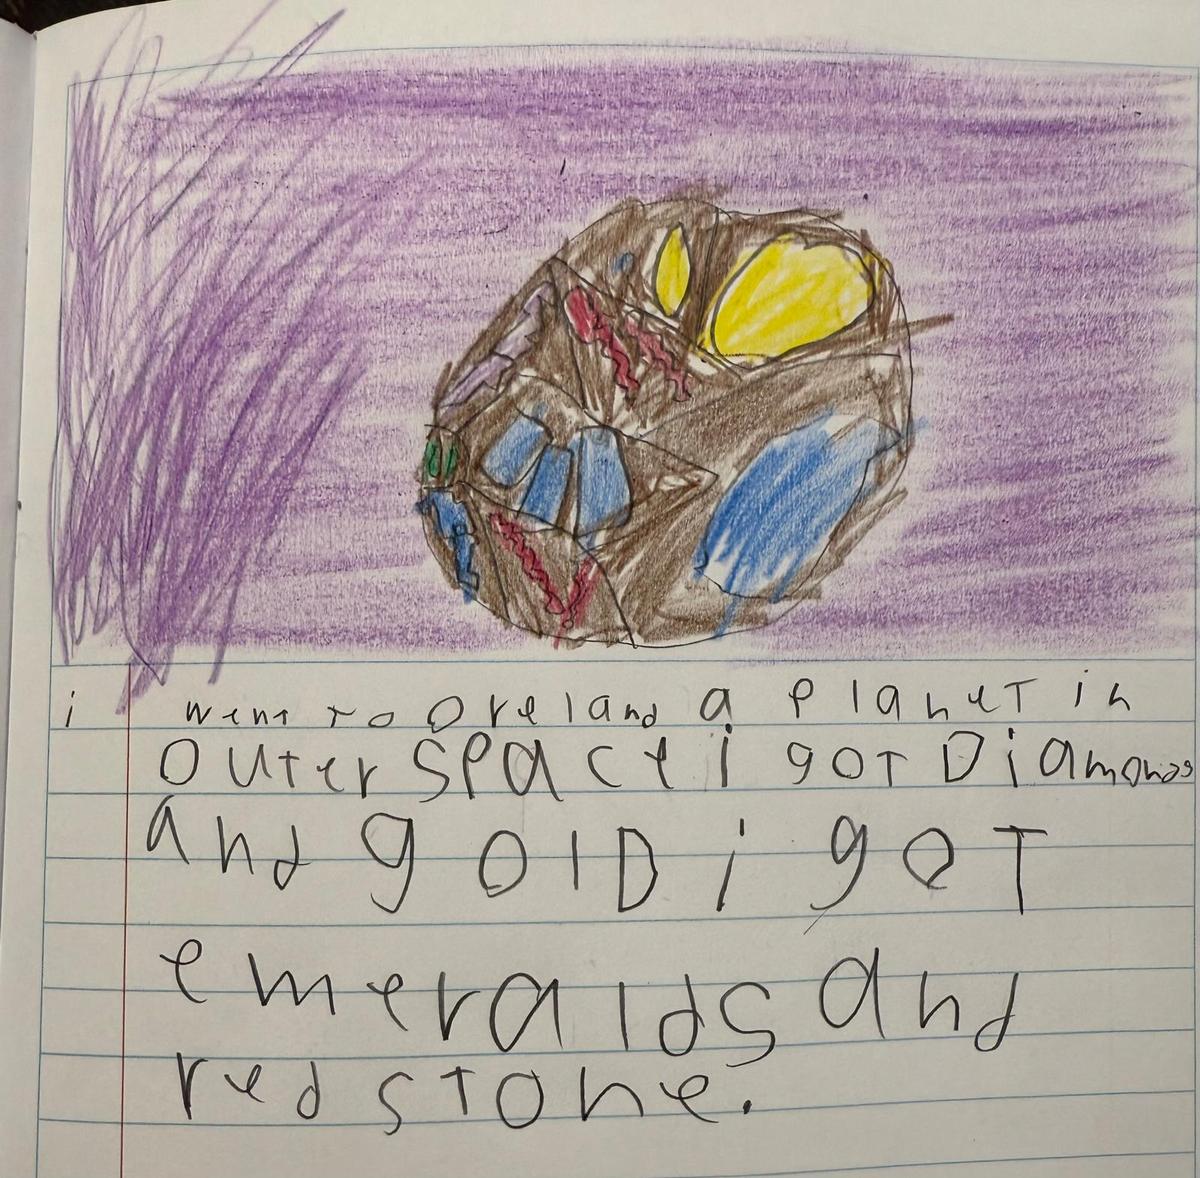 i went to Oreland a planet in
outer space i got Diamonds
and golD i got
emeralds and
redstone.